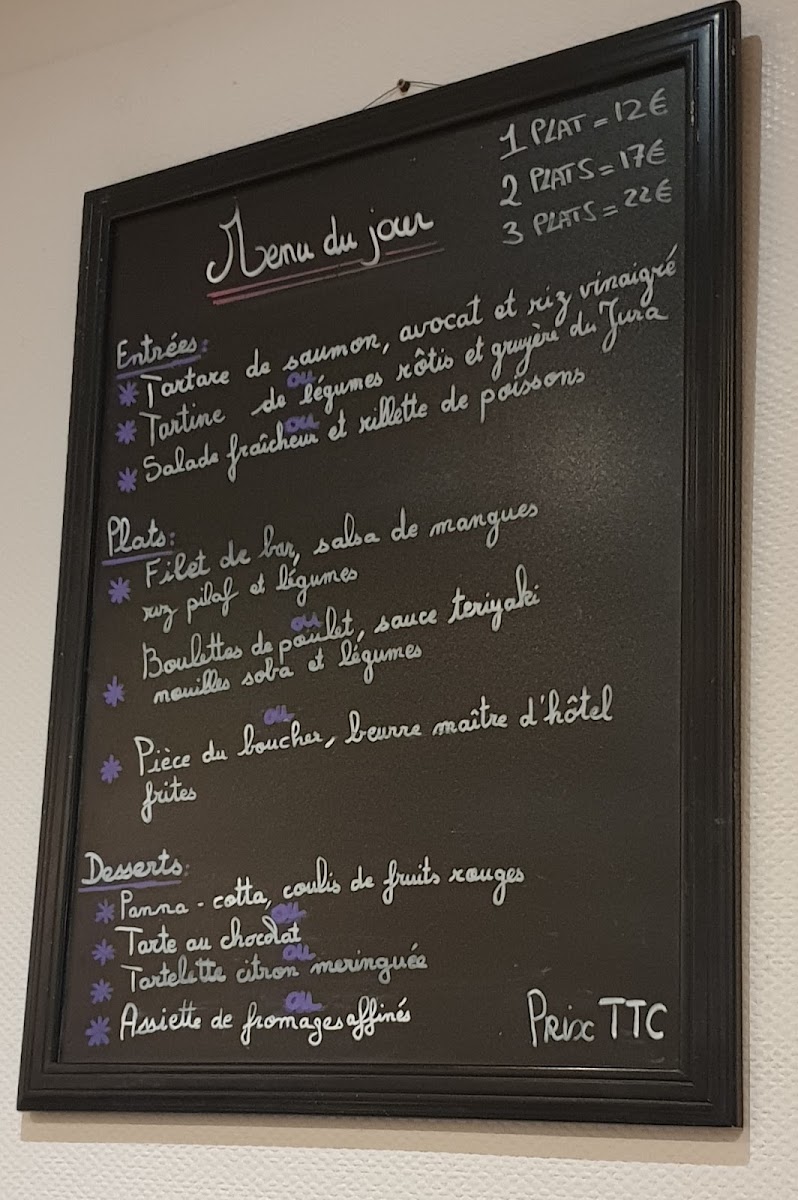 1 PLAT = 12€
2 PLATS = 17€
3 PLATS = 22€
Menu du jour
Entrées:
* Tartare de saumon, avocat et riz vinaigré
ou
* Tartine de légumes rôtis et gruyère du Jura
ou
* Salade fraîcheur et rillette de poissons
Plats:
* Filet de bar, salsa de mangues
riz pilaf et légumes
ou
* Boulettes de poulet, sauce teriyaki
nouilles soba et légumes
ou
* Pièce du boucher, beurre maître d'hôtel
frites
Desserts:
* Panna-cotta, coulis de fruits rouges
ou
* Tarte au chocolat
ou
* Tartelette citron meringuée
ou
* Assiette de fromages affinés
Prix TTC